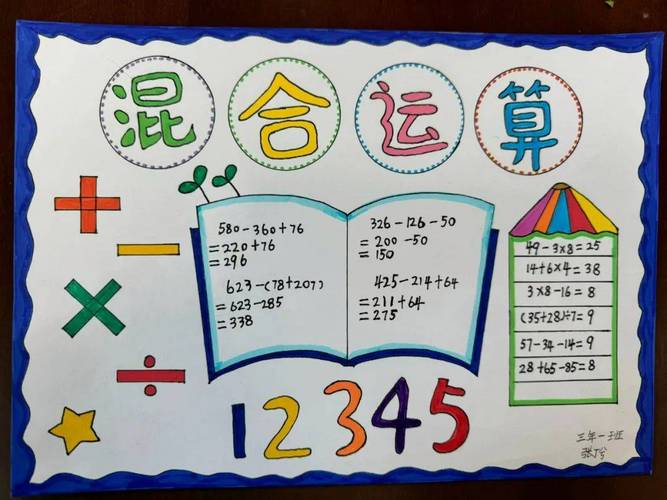 混合运算
580-360+76
=220+76
=296
623-(78+207)
=623-285
=338
326-126-50
=200-50
=150
425-214+64
=211+64
=275
49-3×8=25
14+6×4=38
3×8-16=8
(35+28)÷7=9
57-34-14=9
28+65-85=8
12345
三年一班